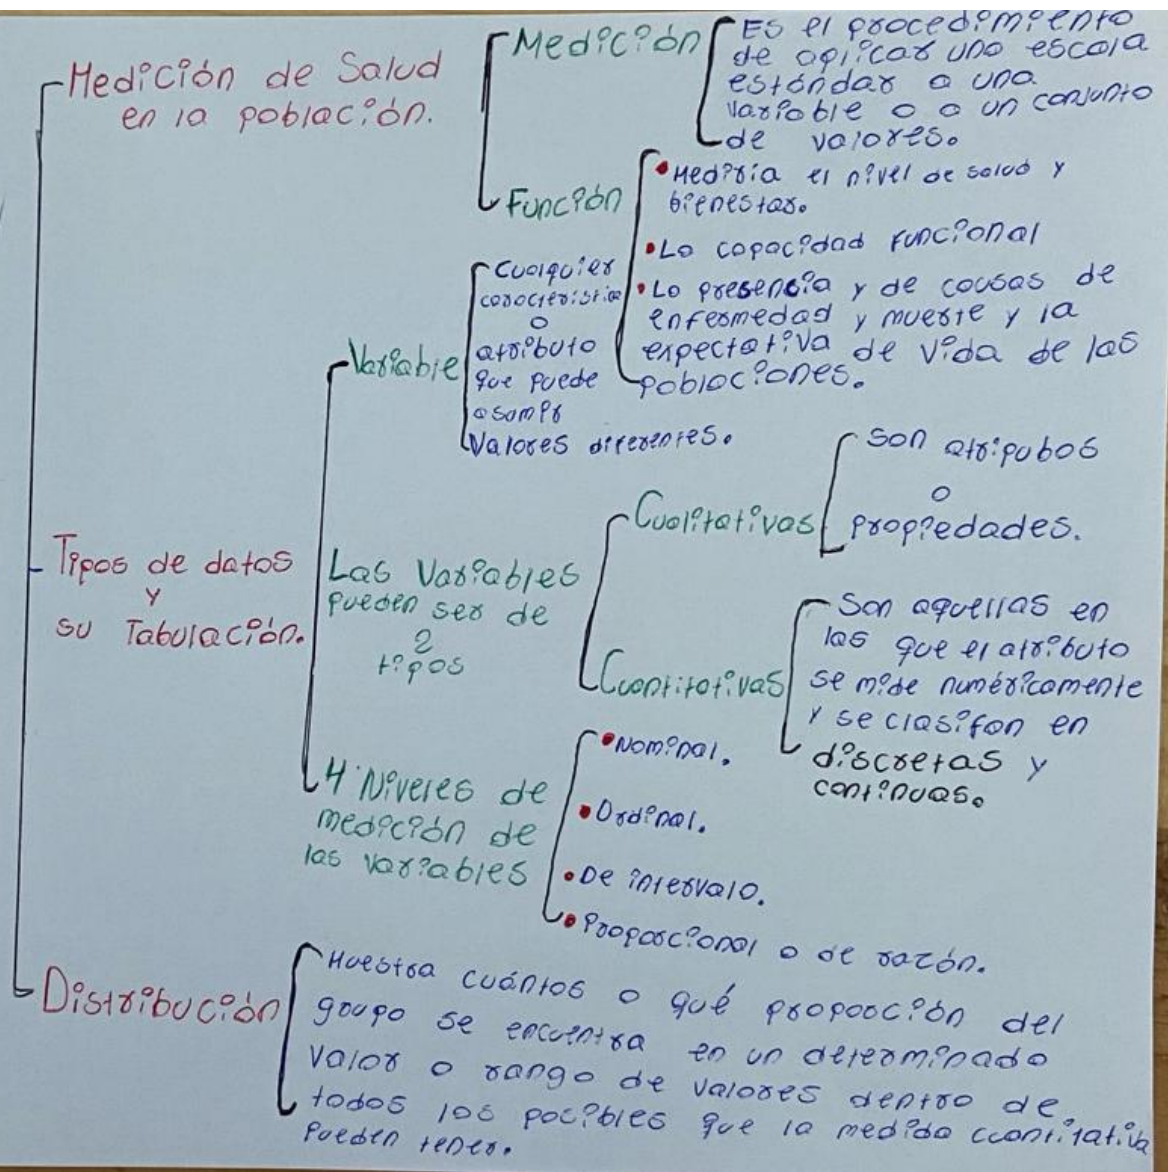 Medición de Salud
en la población.
Medición
Es el procedimiento
de aplicar una escala
estándar a una
variable o a un conjunto
de valores.
Función
• Mediría el nivel de salud y
bienestar.
• La capacidad funcional
• La presencia y de causas de
enfermedad y muerte y la
expectativa de vida de las
poblaciones.
Tipos de datos
y
su Tabulación.
Variable
Cualquier
característica
o
atributo
que puede
asumir
Valores diferentes.
Las Variables
pueden ser de
2
tipos
Cualitativas
Son atripubos
o
propiedades.
Cuantitativas
Son aquellas en
las que el atributo
se mide numéricamente
y se clasifon en
discretas y
continuas.
4 Niveles de
medición de
las variables
• Nominal.
• Ordinal.
• De intervalo.
• Proporcional o de razón.
Distribución
Muestra cuántos o qué proporción del
grupo se encuentra en un determinado
valor o rango de valores dentro de
todos los pocibles que la medida cuantitativa
pueden tener.